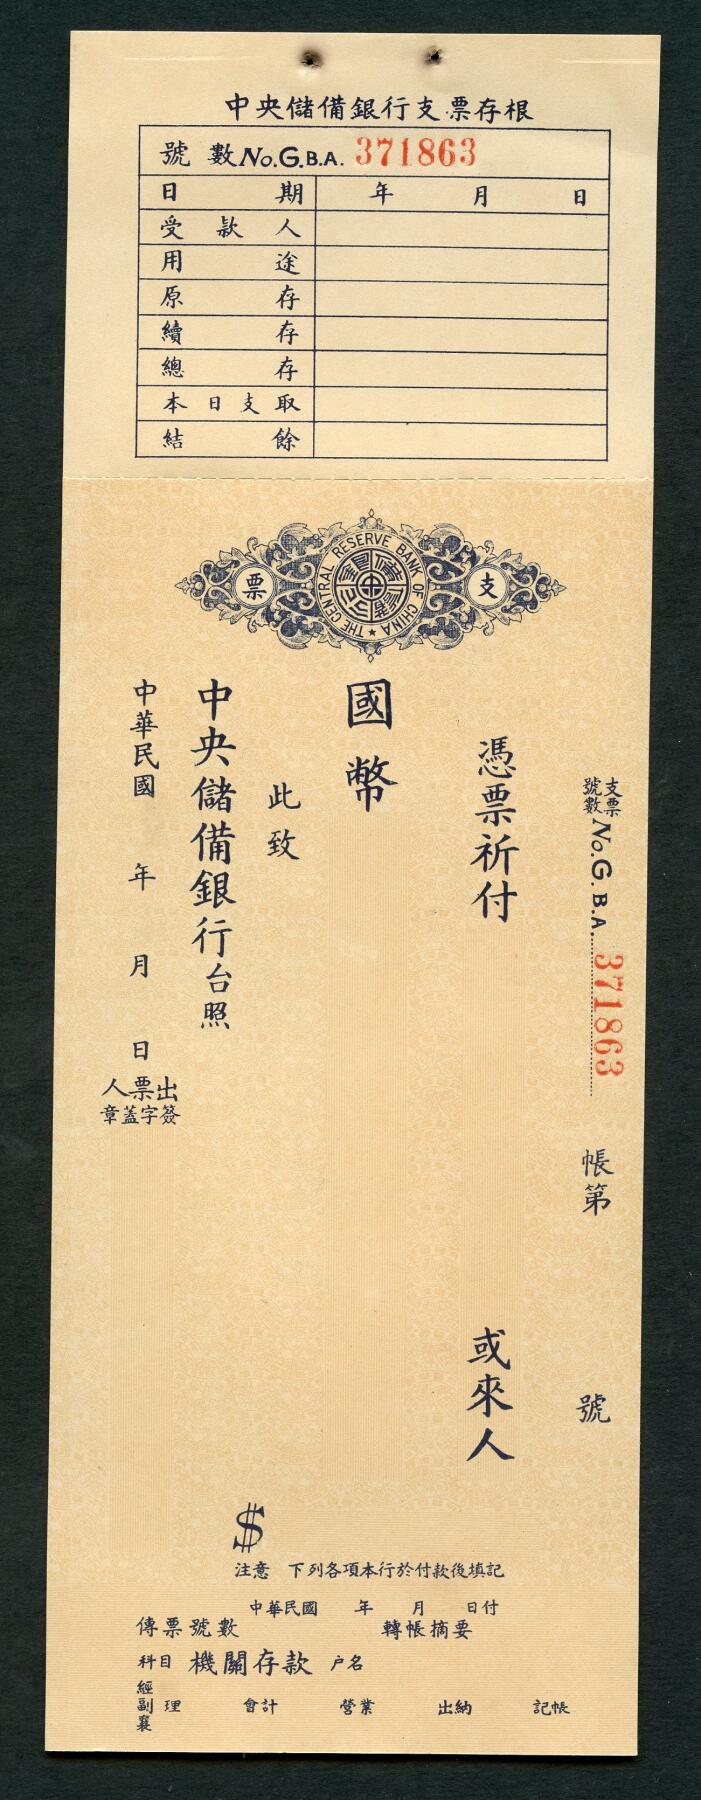 中央儲備銀行支票存根
號數No.G.B.A. 371863
日期 年 月 日
受款人
用途
原存
續存
總存
本日支取
結餘
THE CENTRAL RESERVE BANK OF CHINA
支票
支票號數No.G.B.A. 371863 帳第 號
憑票祈付 或來人
國幣
$
此致
中央儲備銀行台照
中華民國 年 月 日
出票人
簽字蓋章
注意 下列各項本行於付款後填記
中華民國 年 月 日付
傳票號數 轉帳摘要
科目 機關存款 戶名
經副襄理 會計 營業 出納 記帳